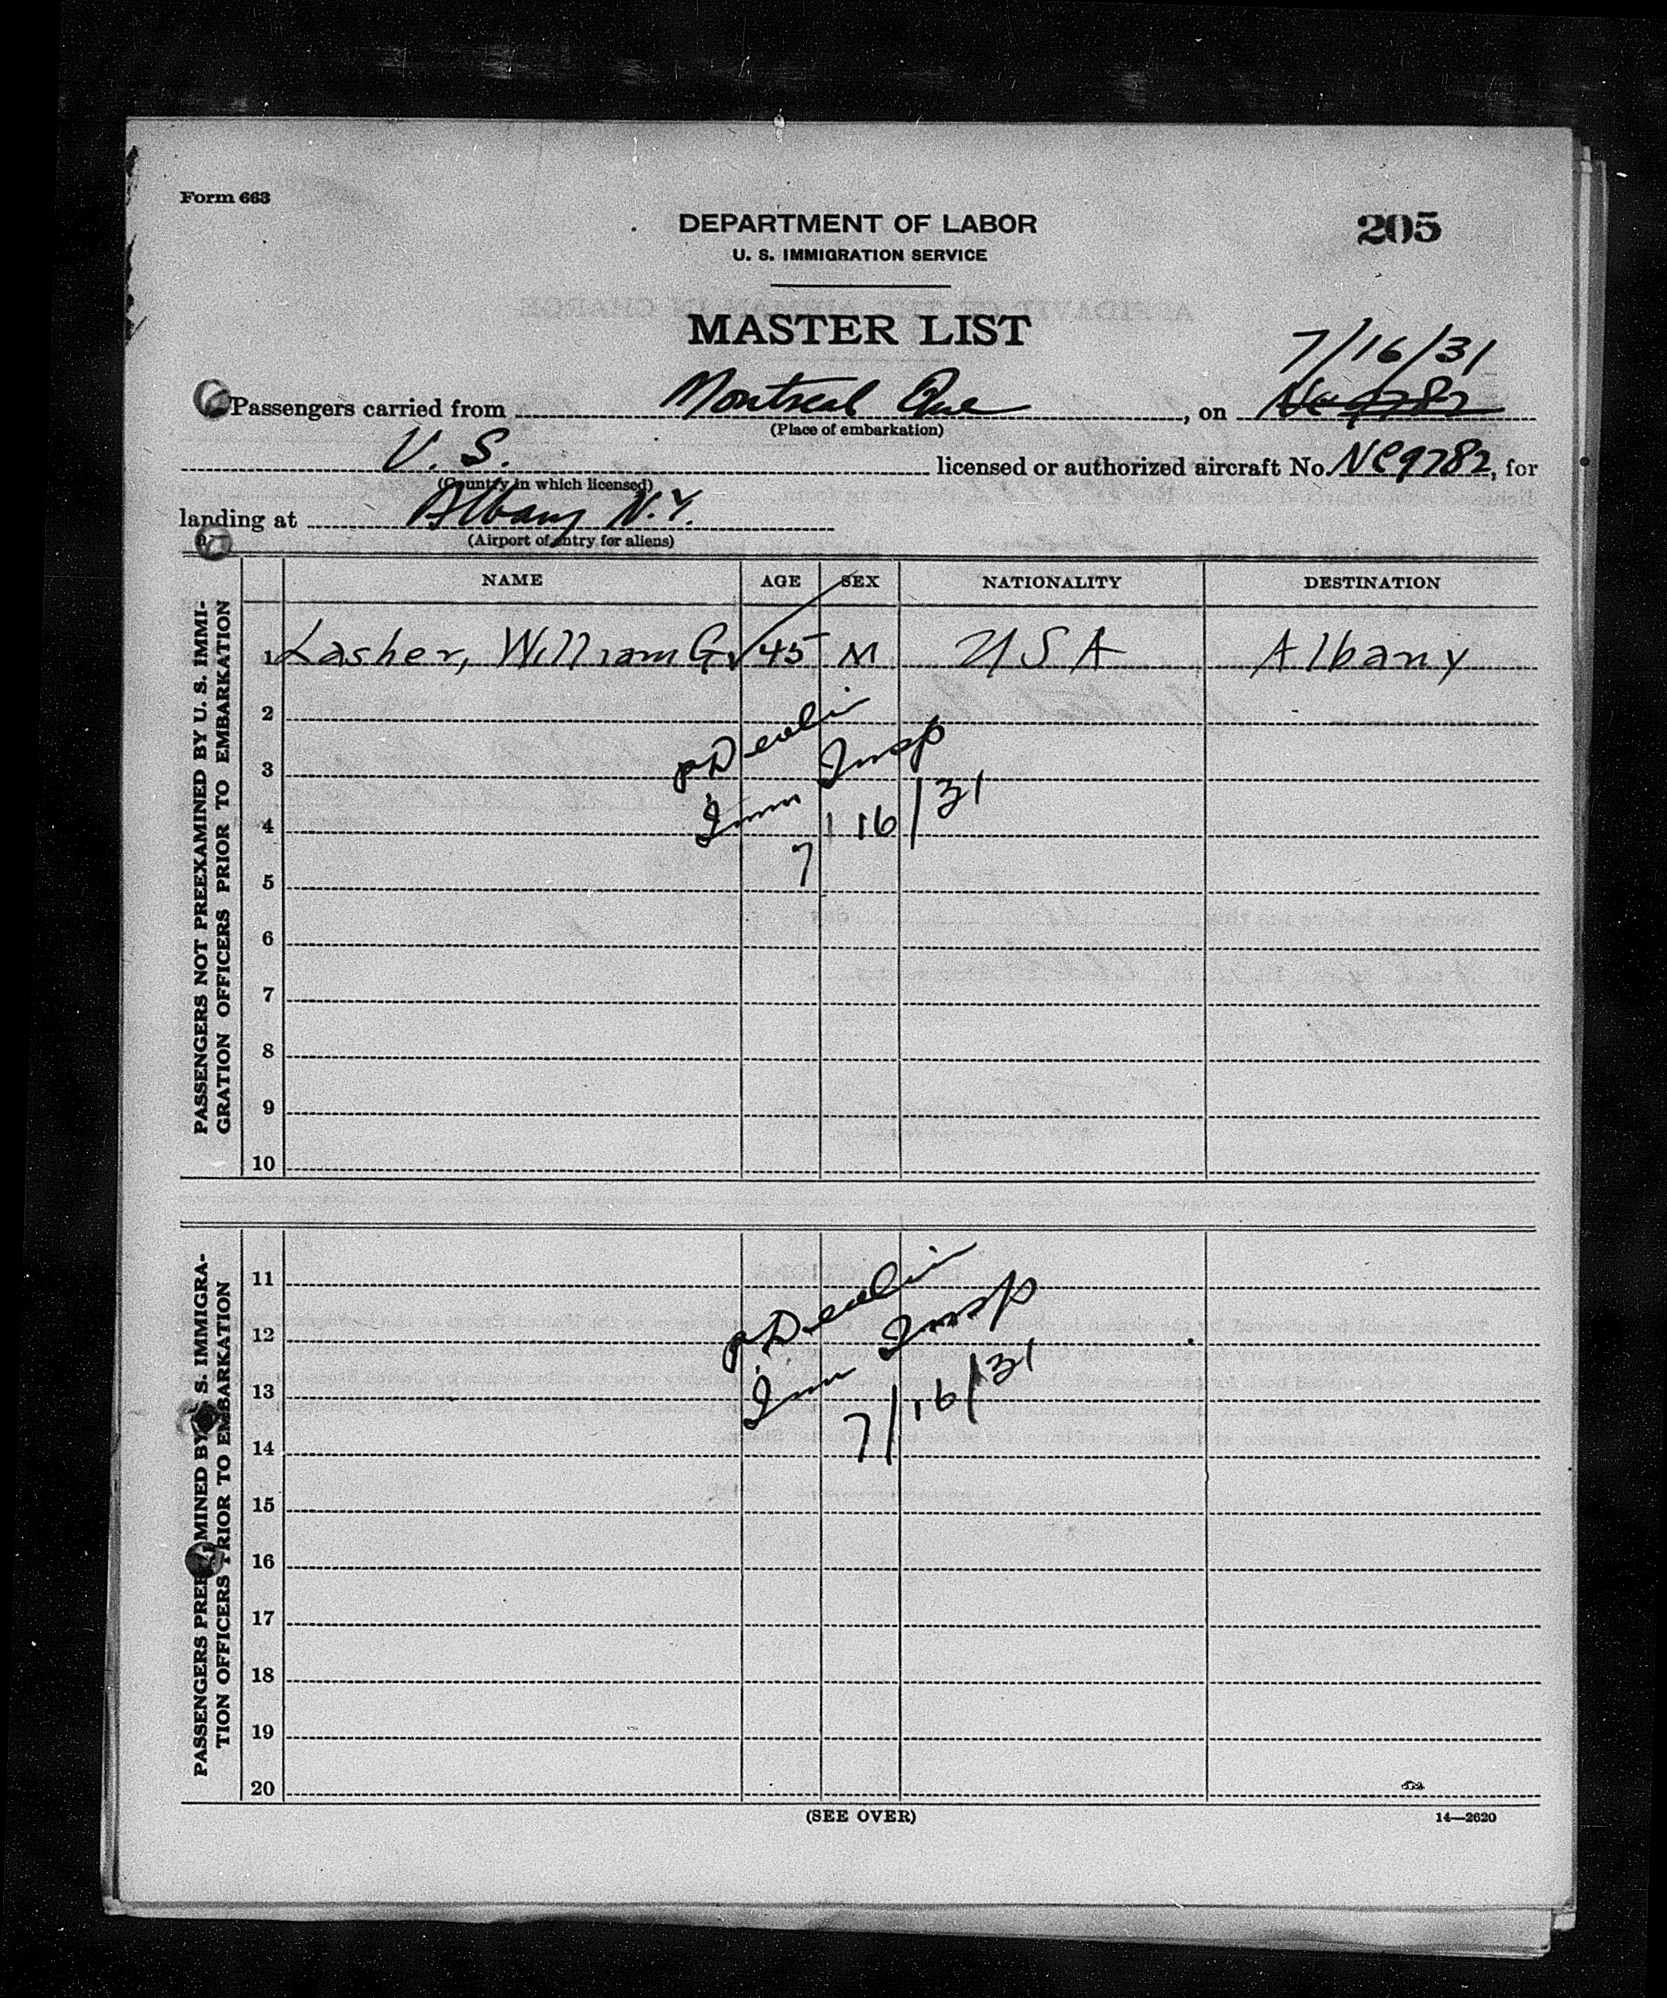 Form 663
DEPARTMENT OF LABOR
205
U. S. IMMIGRATION SERVICE
MASTER LIST
7/16/31
Passengers carried from Montreal Que, on Nc 9782
(Place of embarkation)
U. S. licensed or authorized aircraft No. NC9782, for
(Country in which licensed)
landing at Albany N.Y.
(Airport of entry for aliens)
NAME AGE SEX NATIONALITY DESTINATION
PASSENGERS NOT PREEXAMINED BY U. S. IMMI-
GRATION OFFICERS PRIOR TO EMBARKATION
1 Lasher, William G. 45 M USA Albany
2
3
4
5
6
7
8
9
10
P Devlin
Imm Insp
7/16/31
PASSENGERS PREEXAMINED BY U. S. IMMIGRA-
TION OFFICERS PRIOR TO EMBARKATION
11
12
13
14
15
16
17
18
19
20
P Devlin
Imm Insp
7/16/31
(SEE OVER)
14—2620